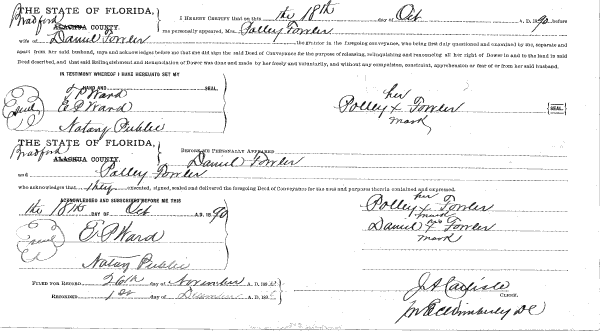 THE STATE OF FLORIDA,
Bradford
ALACHUA COUNTY.
I HEREBY CERTIFY that on this the 18th day of Oct A. D. 1890, before
me personally appeared, Mrs. Polley Fowler
wife of Daniel Fowler the grantor in the foregoing conveyance, who being first duly questioned and examined by me, separate and
apart from her said husband, says and acknowledges before me that she did sign the said Deed of Conveyance for the purpose of releasing, relinquishing and renouncing all her right of Dower in and to the land in said
Deed described, and that said Relinquishment and Renunciation of Dower was done and made by her freely and voluntarily, and without any compulsion, constraint, apprehension or fear of or from her said husband.
IN TESTIMONY WHEREOF I HAVE HEREUNTO SET MY
HAND AND SEAL
E P Ward
Notary Public
her
Polley x Fowler
mark
SEAL
THE STATE OF FLORIDA,
Bradford
ALACHUA COUNTY.
BEFORE ME PERSONALLY APPEARED
Daniel Fowler
and Polley Fowler
who acknowledges that they executed, signed, sealed and delivered the foregoing Deed of Conveyance for the uses and purposes therein contained and expressed.
ACKNOWLEDGED AND SUBSCRIBED BEFORE ME THIS
the 18th DAY OF Oct A.D. 1890
E P Ward
Notary Public
her
Polley x F.
mark
Daniel x Fowler
mark
FILED FOR RECORD 26th day of November A. D. 188
RECORDED 1st day of December A. D. 188
J A Carlisle
CLERK.
Wimberly DC